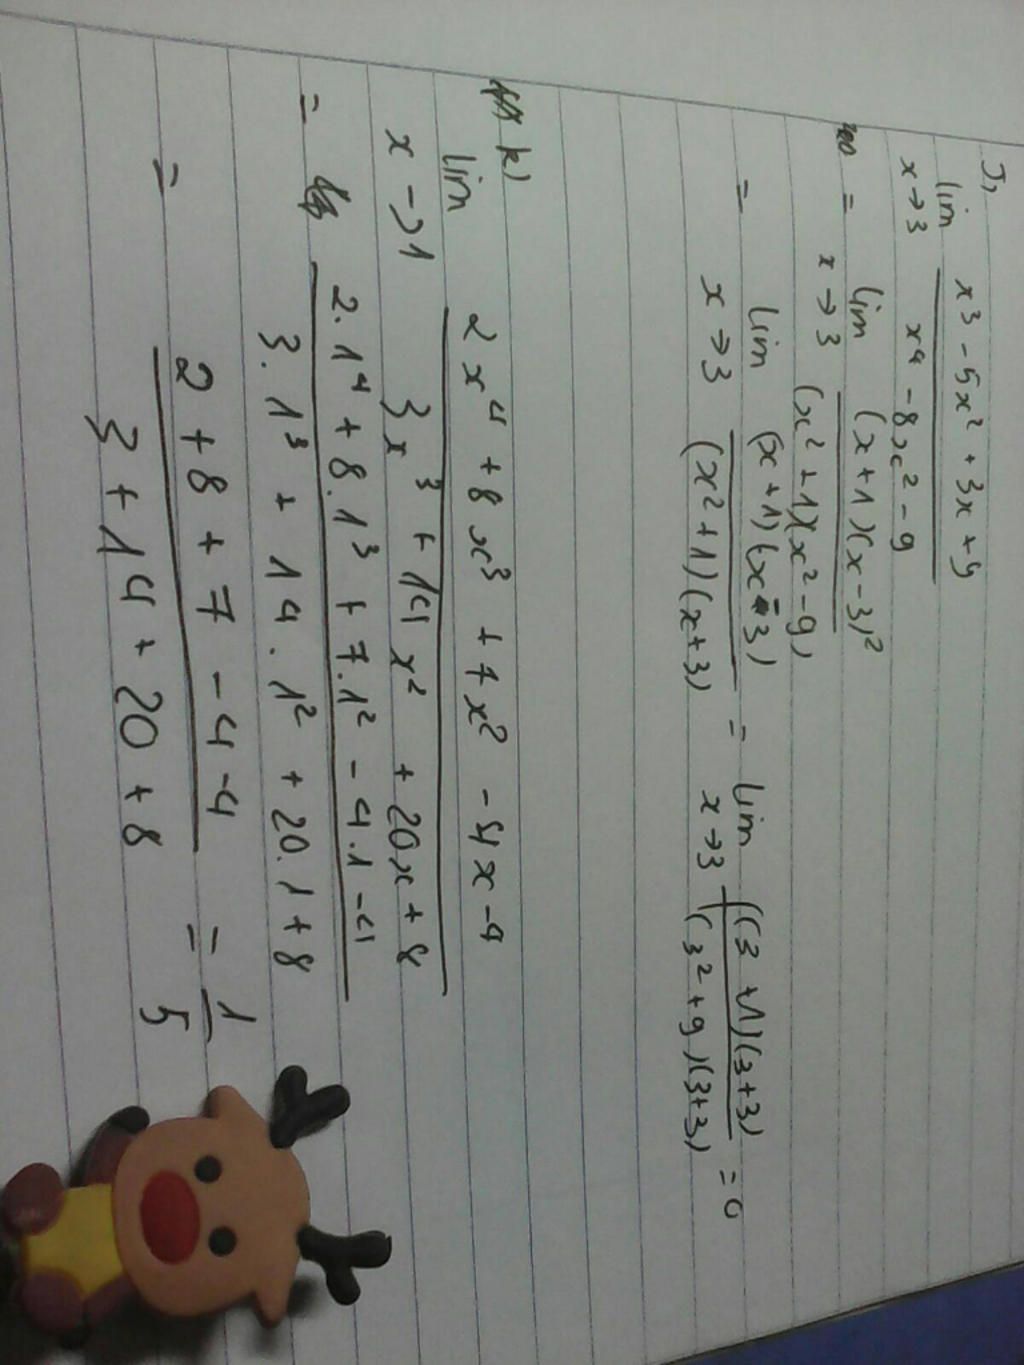 J, lim x→3 (x³ - 5x² + 3x + 9) / (x⁴ - 8x² - 9)
= lim x→3 (x+1)(x-3)² / (x²+1)(x²-9)
= lim x→3 (x+1)(x-3) / (x²+1)(x+3) = lim x→3 ((3+1)(3+3) / (3²+9)(3+3) = 0
k) lim x→1 (2x⁴ + 8x³ + 7x² - 4x - 4) / (3x³ + 14x² + 20x + 8)
= (2.1⁴ + 8.1³ + 7.1² - 4.1 - 4) / (3.1³ + 14.1² + 20.1 + 8)
= (2 + 8 + 7 - 4 - 4) / (3 + 14 + 20 + 8) = 1/5